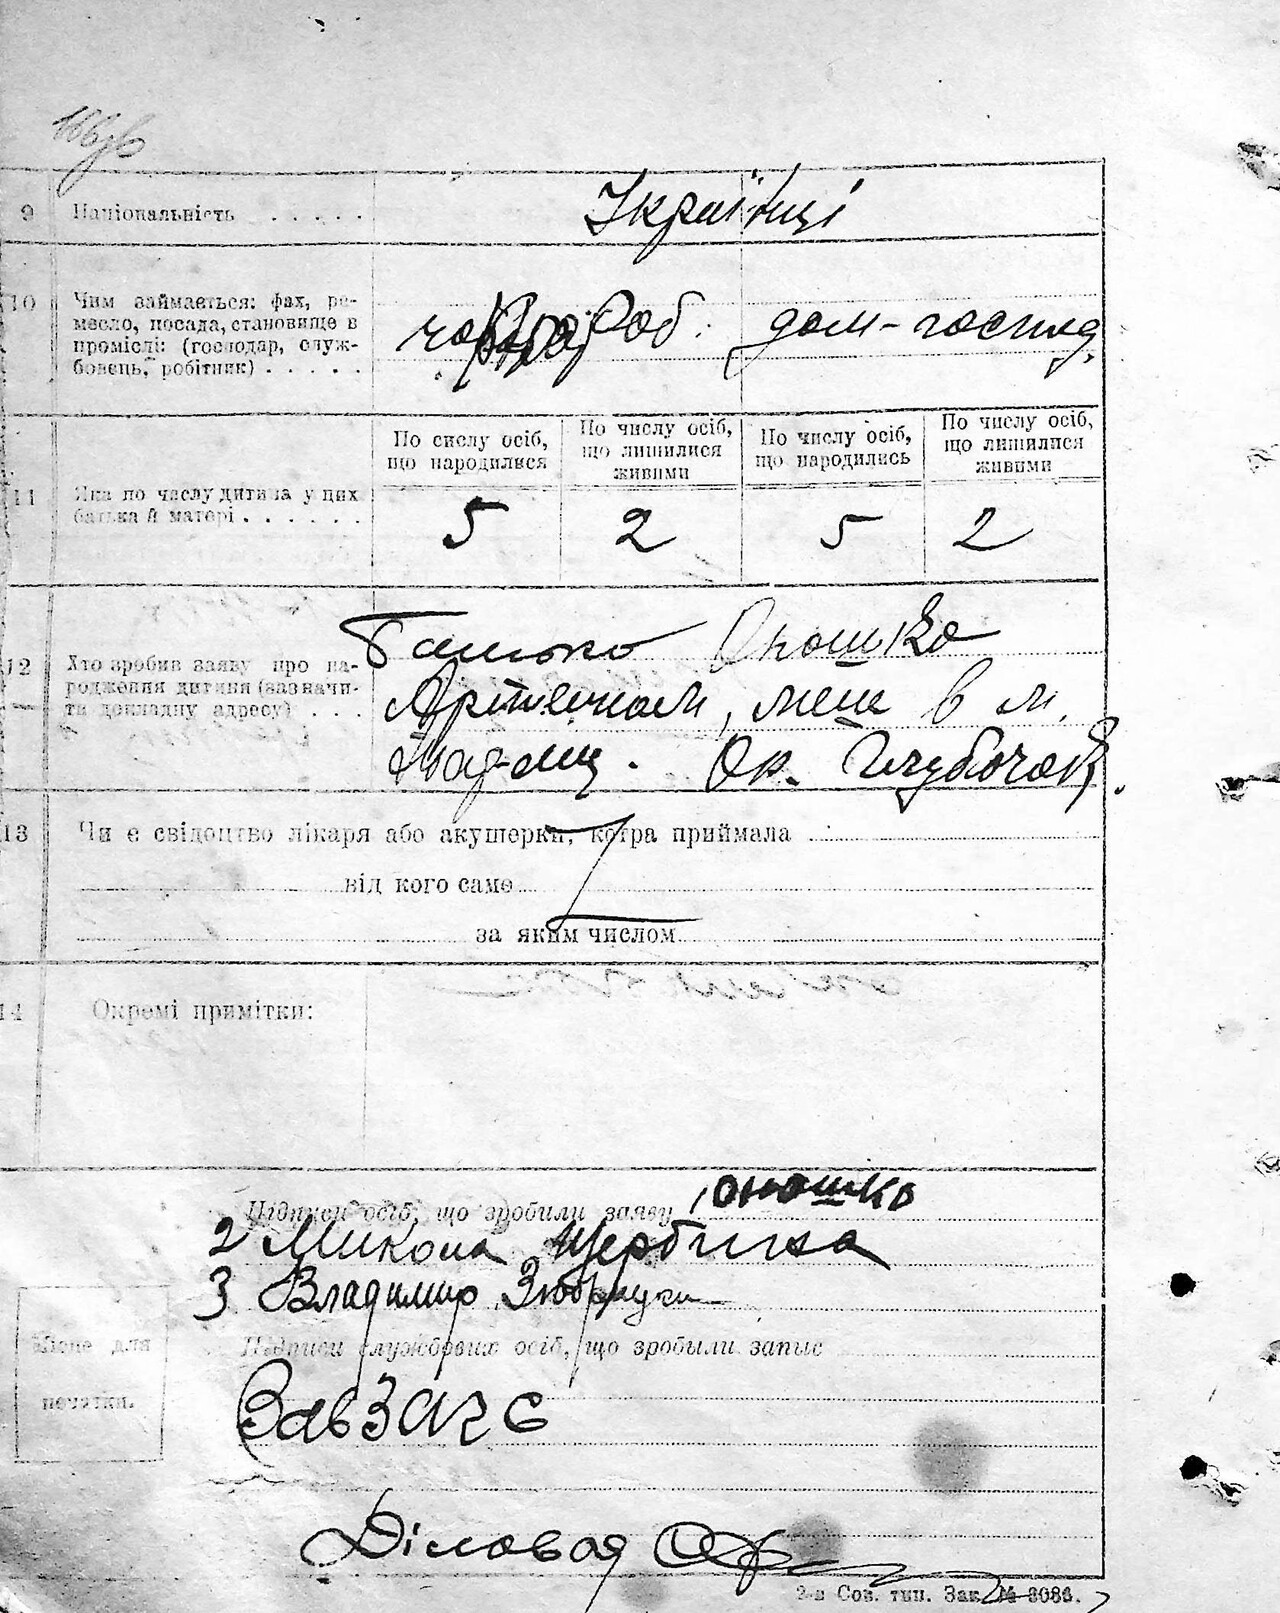 9 Національність . . . . . Українці
10 Чим займається: фах, ре-
месло, посада, становище в
промислі: (господар, служ-
бовець, робітник) . . . . .
Роб. дом-господ.
По числу осіб, що народилися
По числу осіб, що лишилися живими
По числу осіб, що народились
По числу осіб, що лишилися живими
11 Яка по числу дитина у цих
батька й матері . . . . . .
5 2 5 2
12 Хто зробив заяву про на-
родження дитини (зазначи-
ти докладну адресу) . . .
Батько Оношко
меш в м.
Ок.
13 Чи є свідоцтво лікаря або акушерки, котра приймала
від кого саме
за яким числом
14 Окремі примітки:
Підписи осіб, що зробили заяву Оношко
2 Микола Щербина
3 Владимир
Підписи службових осіб, що зробыли запис
Місце для
печатки.
Зав ЗАГС
Діловод
2-а Сов. тип. Зак. № 3086.